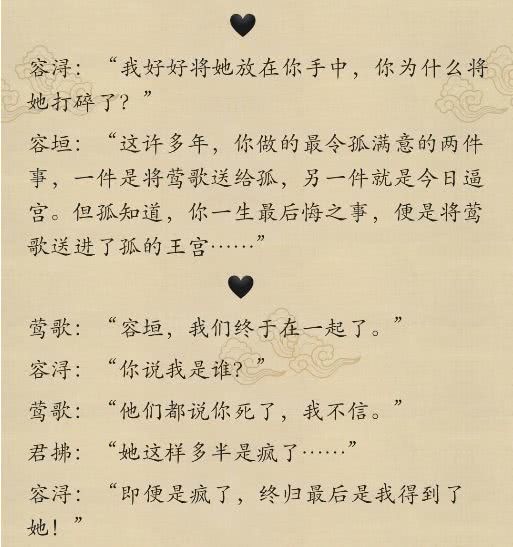 容浔：“我好好将她放在你手中，你为什么将
她打碎了？”
容垣：“这许多年，你做的最令孤满意的两件
事，一件是将莺歌送给孤，另一件就是今日逼
宫。但孤知道，你一生最后悔之事，便是将莺
歌送进了孤的王宫……”
莺歌：“容垣，我们终于在一起了。”
容浔：“你说我是谁？”
莺歌：“他们都说你死了，我不信。”
君拂：“她这样多半是疯了……”
容浔：“即便是疯了，终归最后是我得到了
她！”